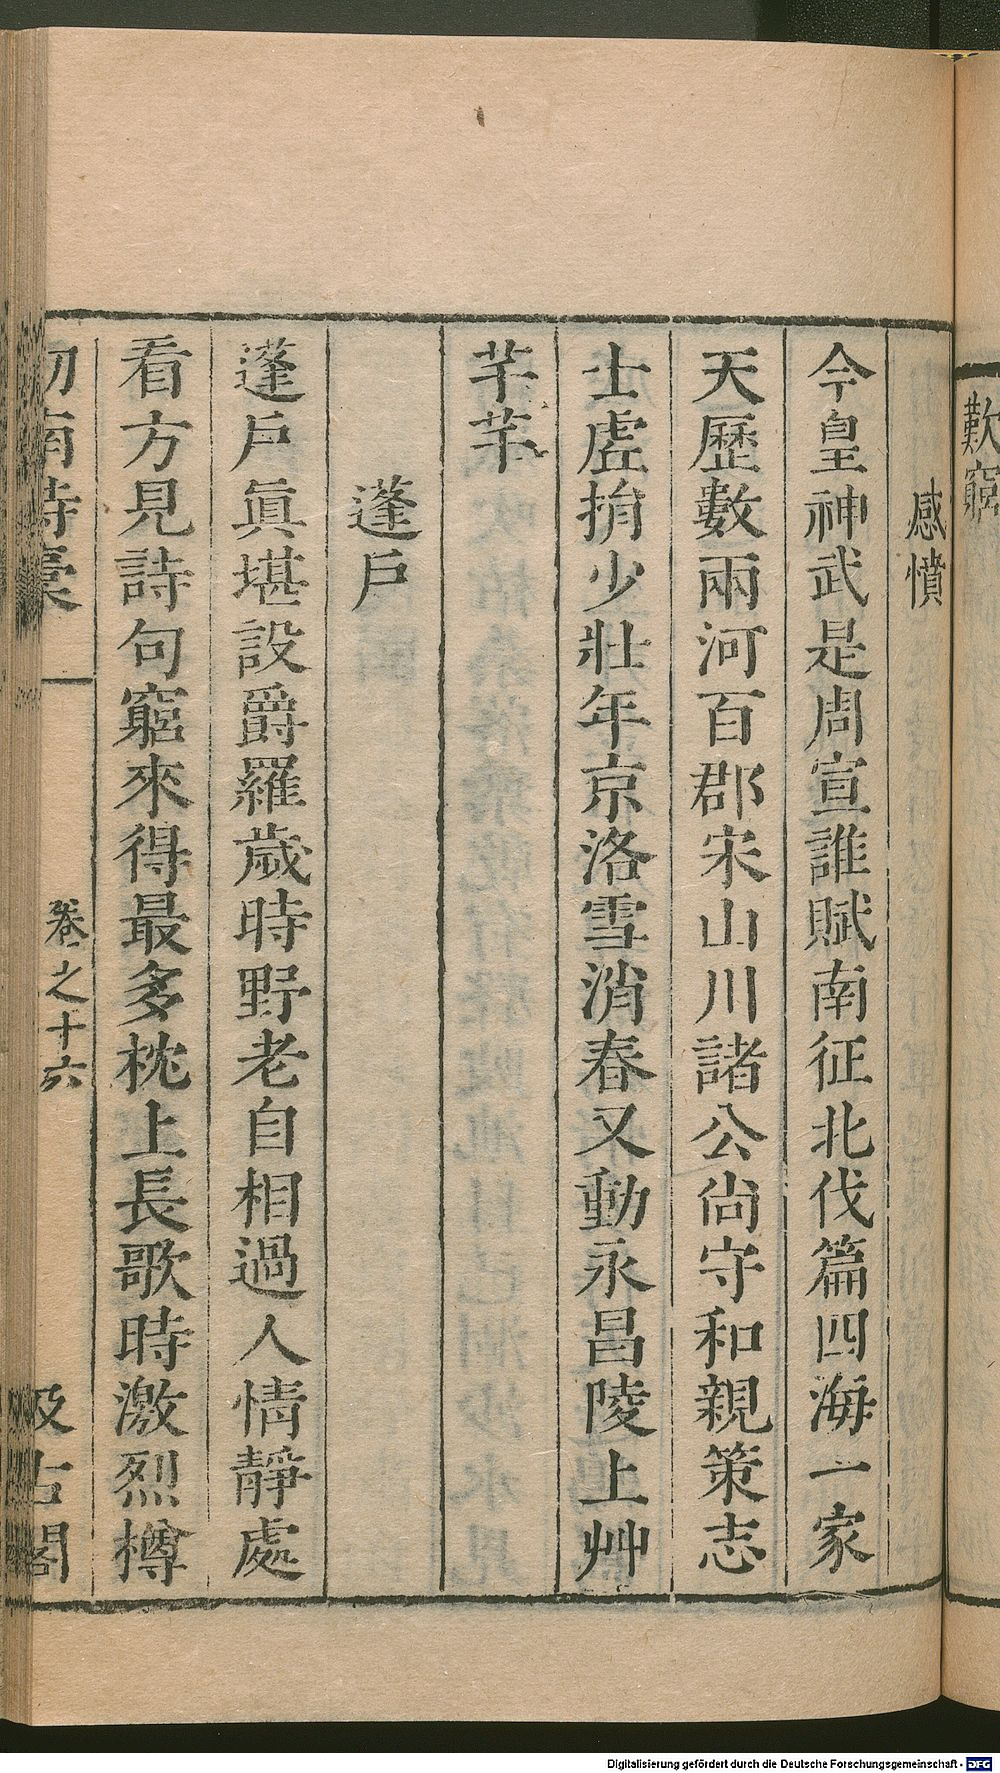 歎窮
感憤
今皇神武是周宣誰賦南征北伐篇四海一家
天歷數兩河百郡宋山川諸公尚守和親策志
士虛捐少壯年京洛雪消春又動永昌陵上艸
芊芊
蓬戶
蓬戶眞堪設爵羅歲時野老自相過人情靜處
看方見詩句窮來得最多枕上長歌時激烈樽
劒南詩稾 卷之十六 汲古閣
Digitalisierung gefördert durch die Deutsche Forschungsgemeinschaft - DFG